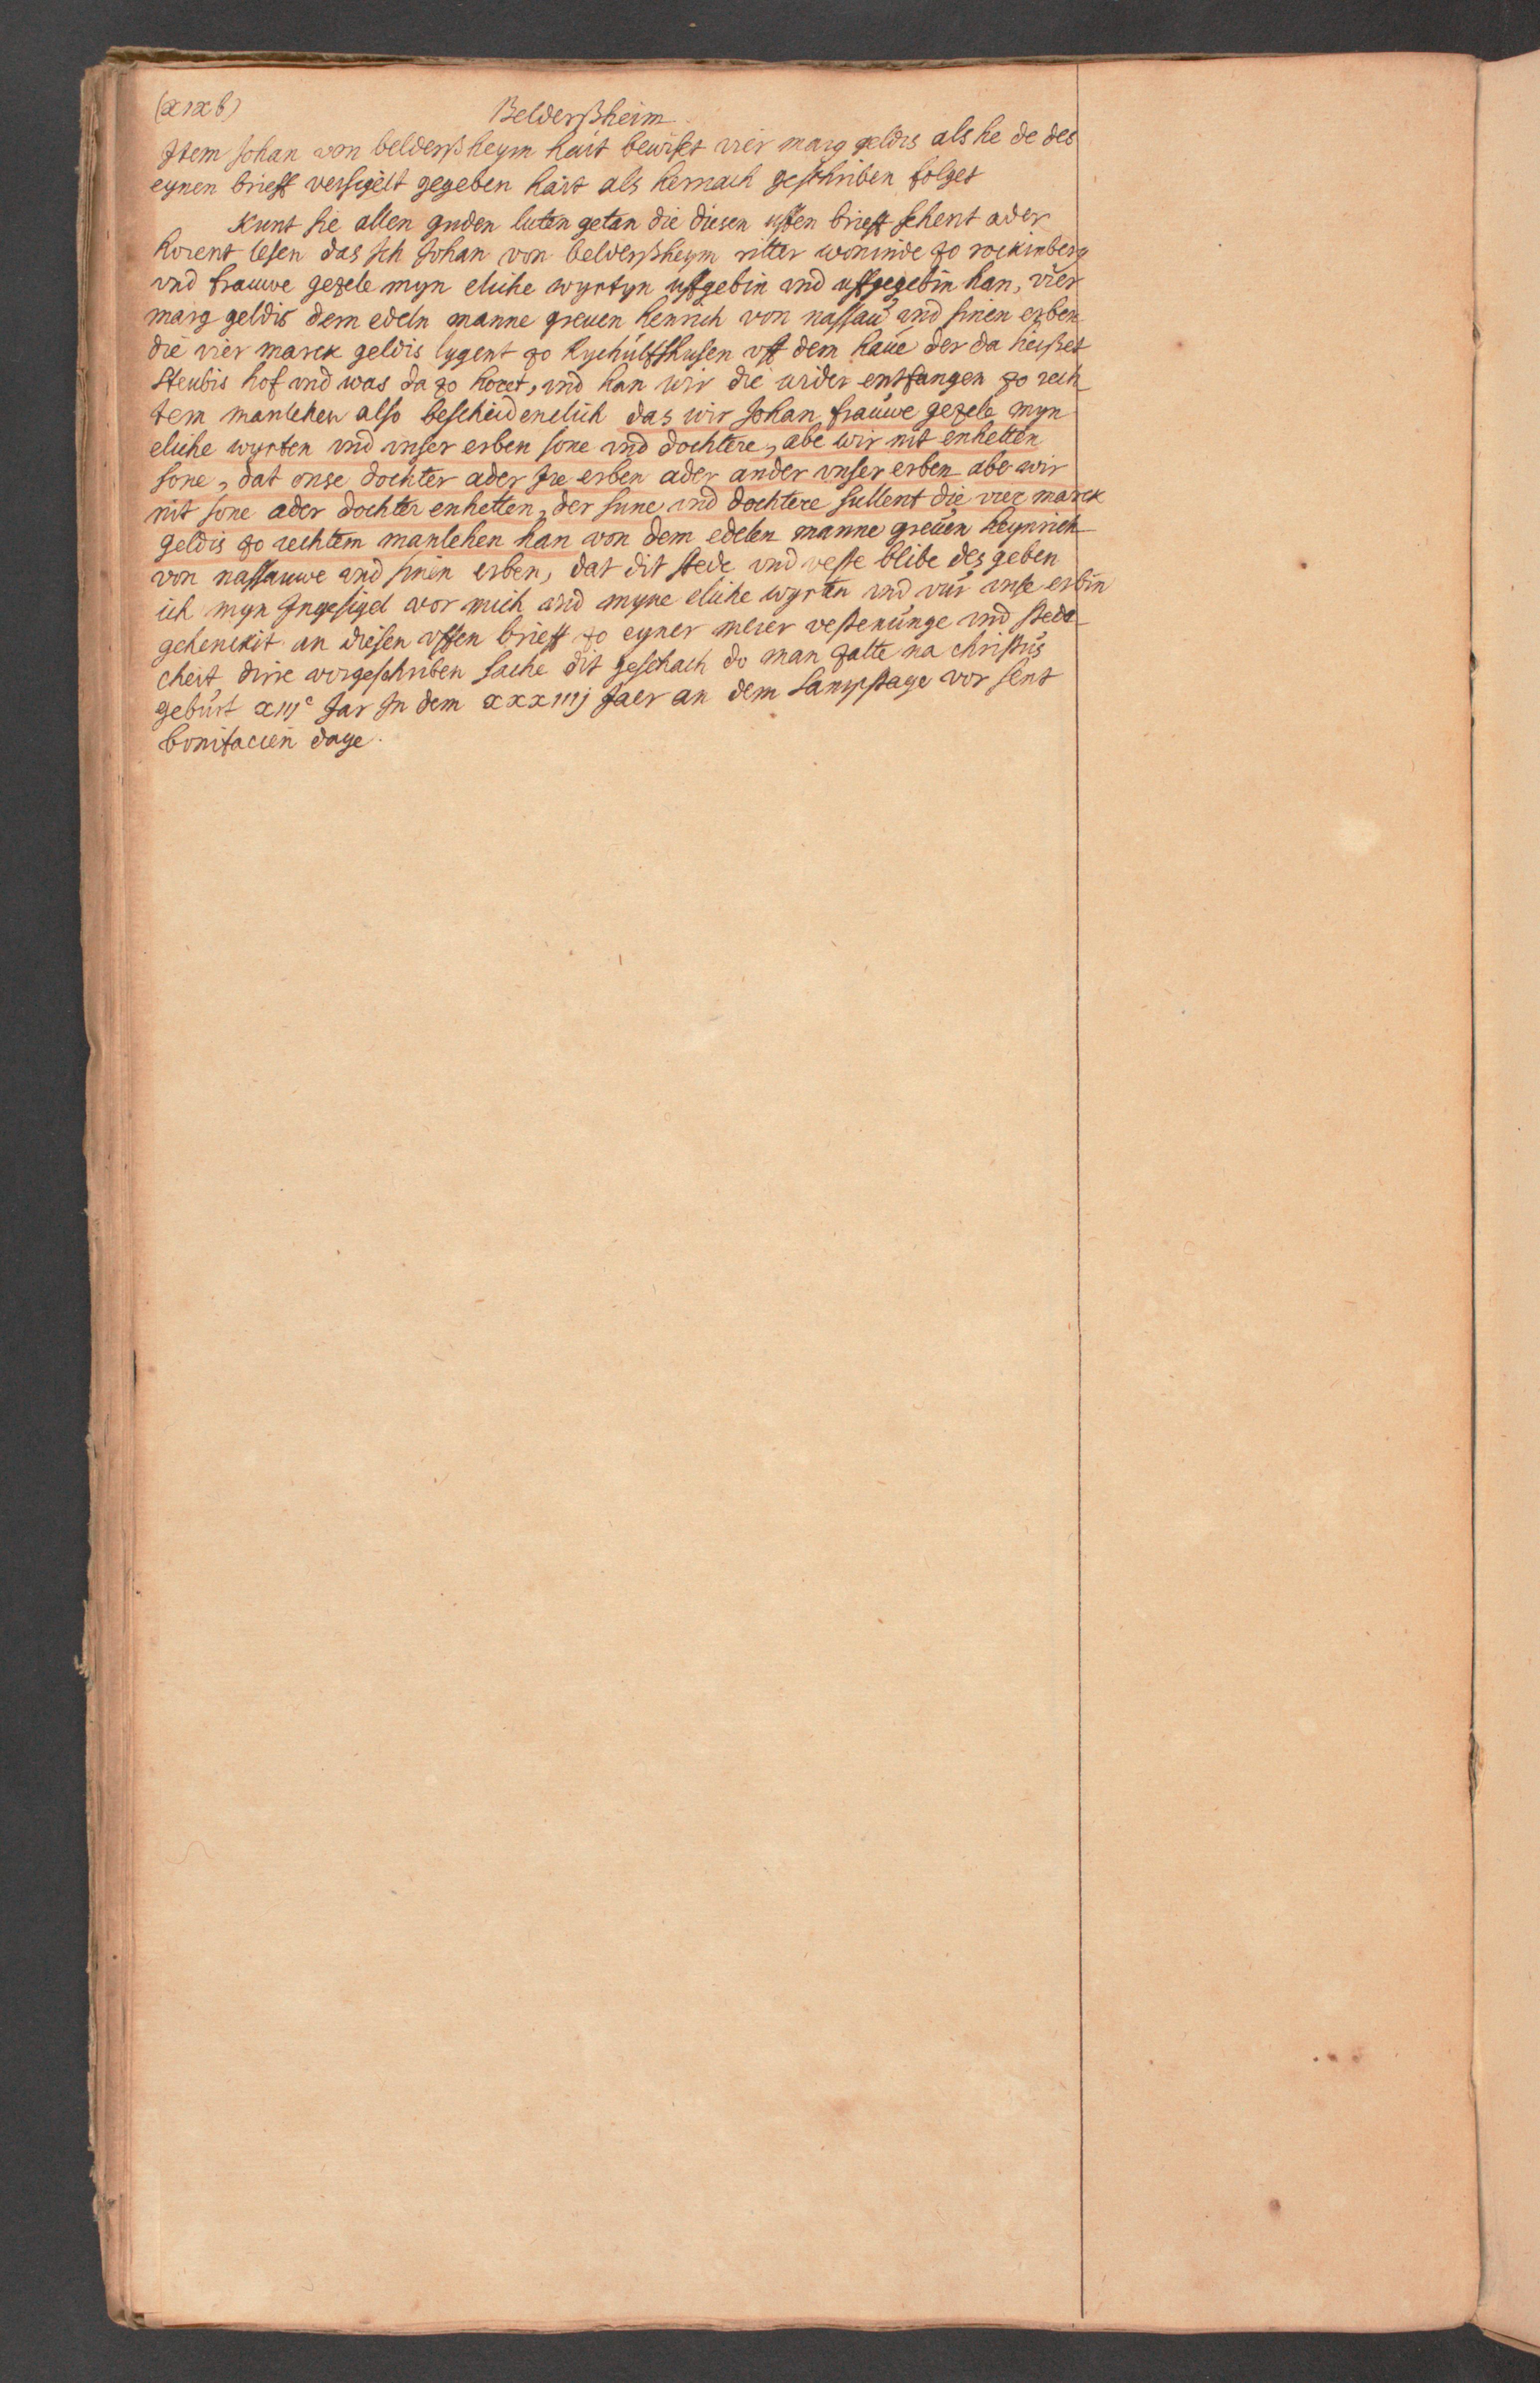 (xixb)
Belderßheim
Item Johan von belderßheym hait bewiset vier marg geldis als he de des
eynen brieff versigelt gegeben hait als hernach geschriben folget
Kunt sie allen guden luten getan die diesen uffen brieff sehent ader
horent lesen das Ich Johan von belderßheym ritter woninde zo rockinberg
vnd frauwe gezele myn eliche wyrtyn uffgebin vnd uffgegebin han, vier
marg geldis dem edeln manne greuen henrich von nassau vnd sinen erben
die vier marck geldis lygent zo Rychulfshusen uff dem haue der da heißet
Steubis hof vnd was da zo horet, vnd han wir die wider entfangen zo rech
tem manlehen also bescheidenelich das wir Johan frauwe gezele myn
eliche wyrten vnd vnser erben sone vnd dochtere, abe wir nit enhetten
sone, dat onse dochter ader Ire erben ader ander vnser erben abe wir
nit sone ader dochter enhetten, der sune vnd dochtere sullent die vier marck
geldis zo rechtem manlehen han von dem edelen manne greuen heynrich
von nassauwe vnd sinen erben, dat dit stede vnd veste blibe des geben
ich myn Ingesigel vor mich vnd myne eliche wyrten vnd vur vnse erbin
gehenckit an diesen uffen brieff zo eyner merer vestenunge vnd stede
cheit dirre vorgeschriben sache dit geschach do man zalte na christus
geburt xiijc Jar In dem xxxiiij Jaer an dem sampstage vor sent
bonifacien dage.